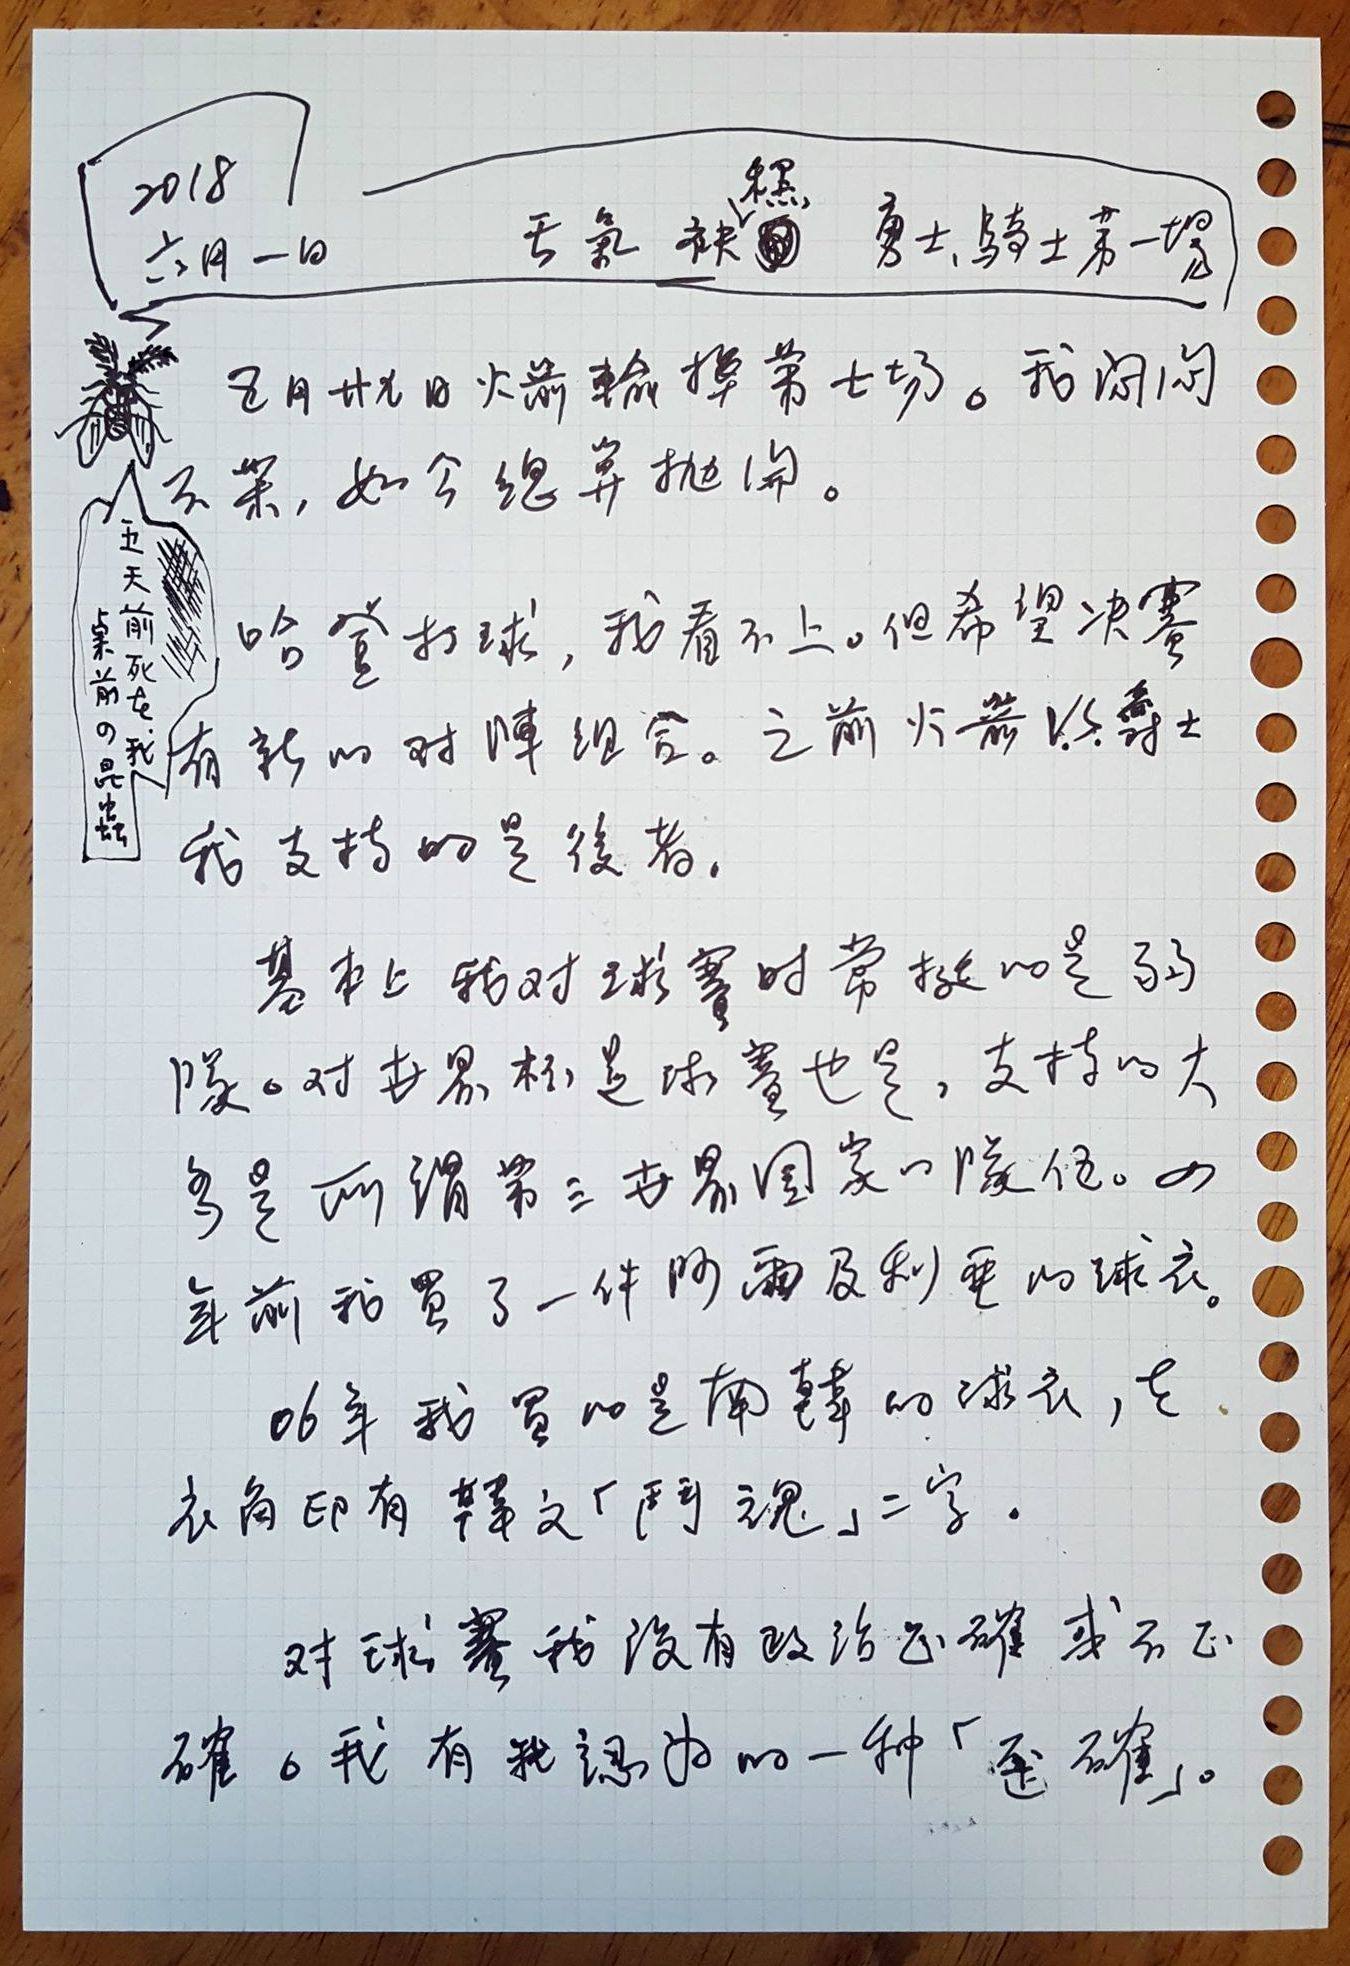 2018
六月一日
天氣 炎
勇士、騎士第一場
五月廿九日火箭輸掉第七場。我悶悶
不樂，如今總算拋開。
五天前死在我
桌前の昆蟲
哈登打球，我看不上。但希望决賽
有新的对陣組合。之前火箭 爵士
我支持的是後者。
基本上我对球賽时常挺的是弱
隊。对世界杯足球賽也是，支持的大
多是所謂第三世界国家的隊伍。四
年前我買了一件阿爾及利亚的球衣。
06年我買的是南韓的球衣，在
衣角印有韓文「鬥魂」二字。
对球賽我沒有政治正確或不正
確。我有我認为的一种「歪確」。